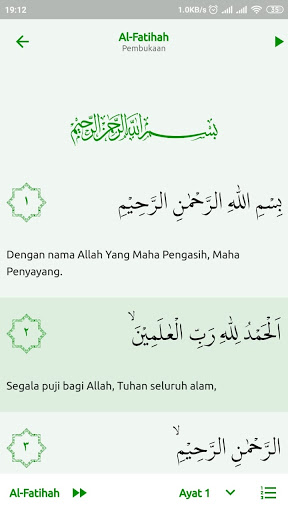 19:12
1.0KB/s
35
Al-Fatihah
Pembukaan
بِسْمِ اللهِ الرَّحْمٰنِ الرَّحِيْمِ
١
بِسْمِ اللهِ الرَّحْمٰنِ الرَّحِيْمِ
Dengan nama Allah Yang Maha Pengasih, Maha
Penyayang.
٢
اَلْحَمْدُ لِلّٰهِ رَبِّ الْعٰلَمِيْنَۙ
Segala puji bagi Allah, Tuhan seluruh alam,
٣
الرَّحْمٰنِ الرَّحِيْمِۙ
Al-Fatihah
Ayat 1